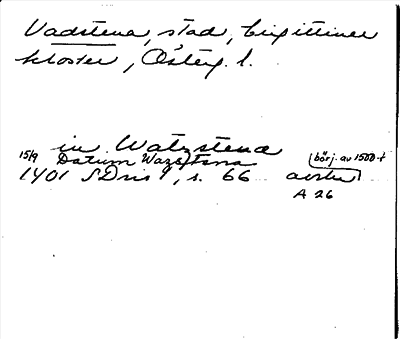 Vadstena, stad, birgittiner
kloster, Österg. l.
in Watzstena
15/9 Datum Wazstena (börj. av 1500-t
1401 SDns 1, s. 66 avskr
A 26